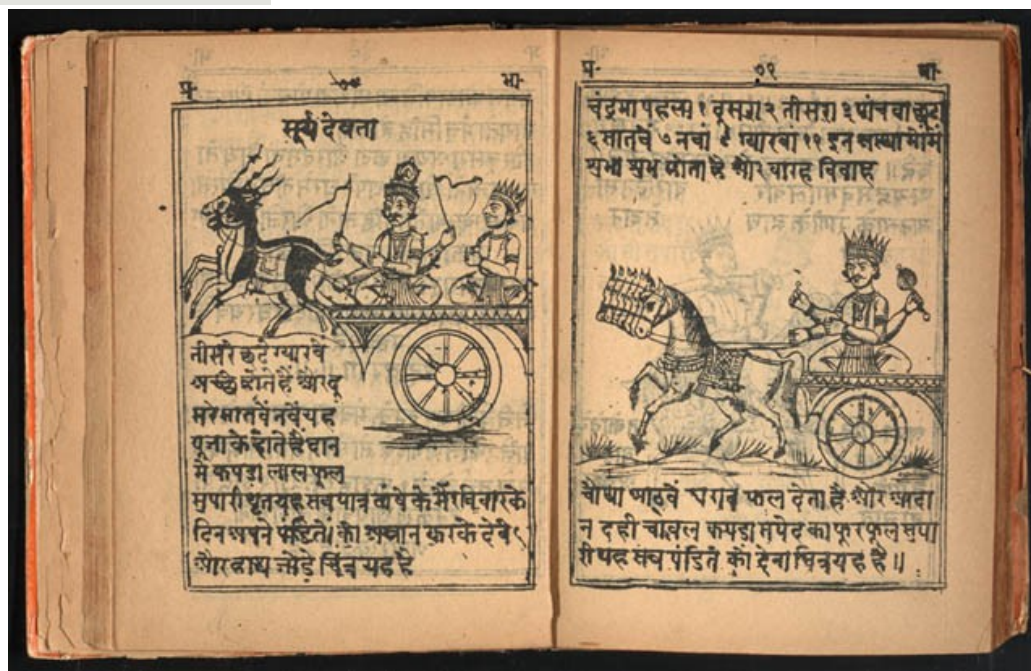 प्र॰ ७० भा॰
सूर्य देवता
तीसरे छटे ग्यारवें
अच्छे होते हैं औरदू
सरे सातवें नवें यह
पूजा के होते है दान
में कपडा लाल फूल
सुपारी घृत यह सब पात्र के में रविवार के
दिन अपने पंडितों को करके देवे
और हाथ जोडे चित्र यह है
प्र॰ ७१ भा॰
चंद्रमा पहला १ दूसरा २ तीसरा ३ पांचवा छटा
६ सातवें ७ नवां ९ ग्यारवां ११ इन में
शुभ होता है और विवाह
चौथा आठवें फल देता है और
न दही चावल कपडा सपेद फूल सुपा
री यह सब पंडित को देना चित्र यह है॥